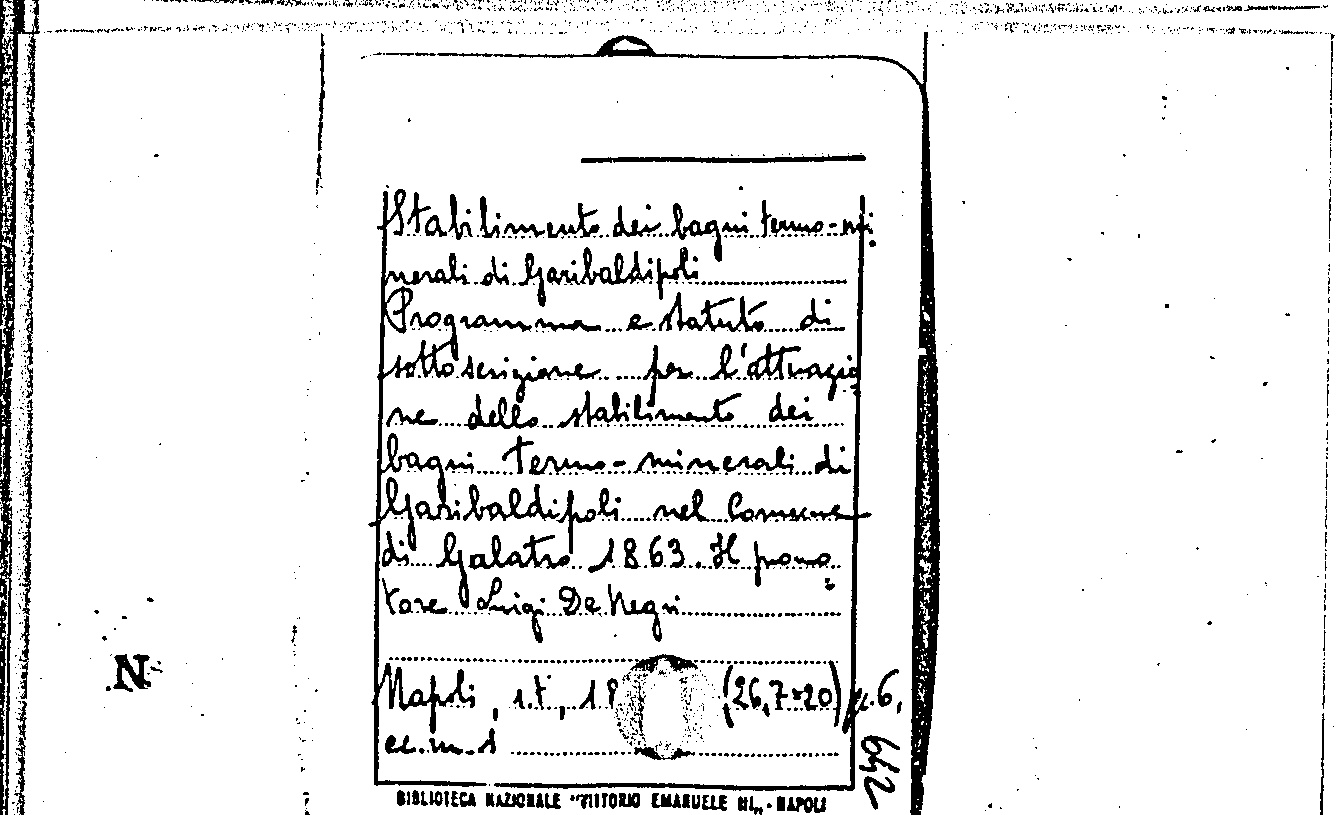 Stabilimento dei bagni termo-mi-
nerali di Garibaldipoli
Programma e statuto di
sottoscrizione per l'attuazio=
ne dello stabilimento dei
bagni termo-minerali di
Garibaldipoli nel Comune
di Galatro 1863. Il promo=
tore Luigi De Negri
Napoli, s.t., 18 (26,7×20) p.6,
cc.m.1
249
BIBLIOTECA NAZIONALE "VITTORIO EMANUELE III" - NAPOLI
N